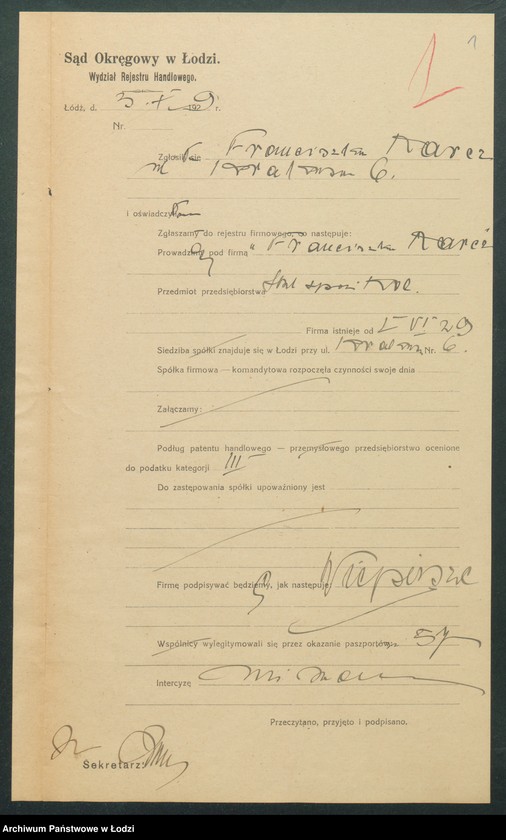 1
1
Sąd Okręgowy w Łodzi.
Wydział Rejestru Handlowego.
Łódź, d. 5 X 1929 r.
Nr.
Zgłosił się Franciszka Karcz
6.
i oświadczył
Zgłaszamy do rejestru firmowego, co następuje:
Prowadzę pod firmą "Franciszka Karcz
Przedmiot przedsiębiorstwa
Firma istnieje od I VI 29
Siedziba spółki znajduje się w Łodzi przy ul. Nr. 6.
Spółka firmowa — komandytowa rozpoczęła czynności swoje dnia
Załączamy:
Podług patentu handlowego — przemysłowego przedsiębiorstwo ocenione
do podatku kategorji III
Do zastępowania spółki upoważniony jest
Firmę podpisywać będziemy, jak następuje:
Wspólnicy wylegitymowali się przez okazanie paszportów
Intercyzę nie mam
Przeczytano, przyjęto i podpisano.
Sekretarz:
Archiwum Państwowe w Łodzi